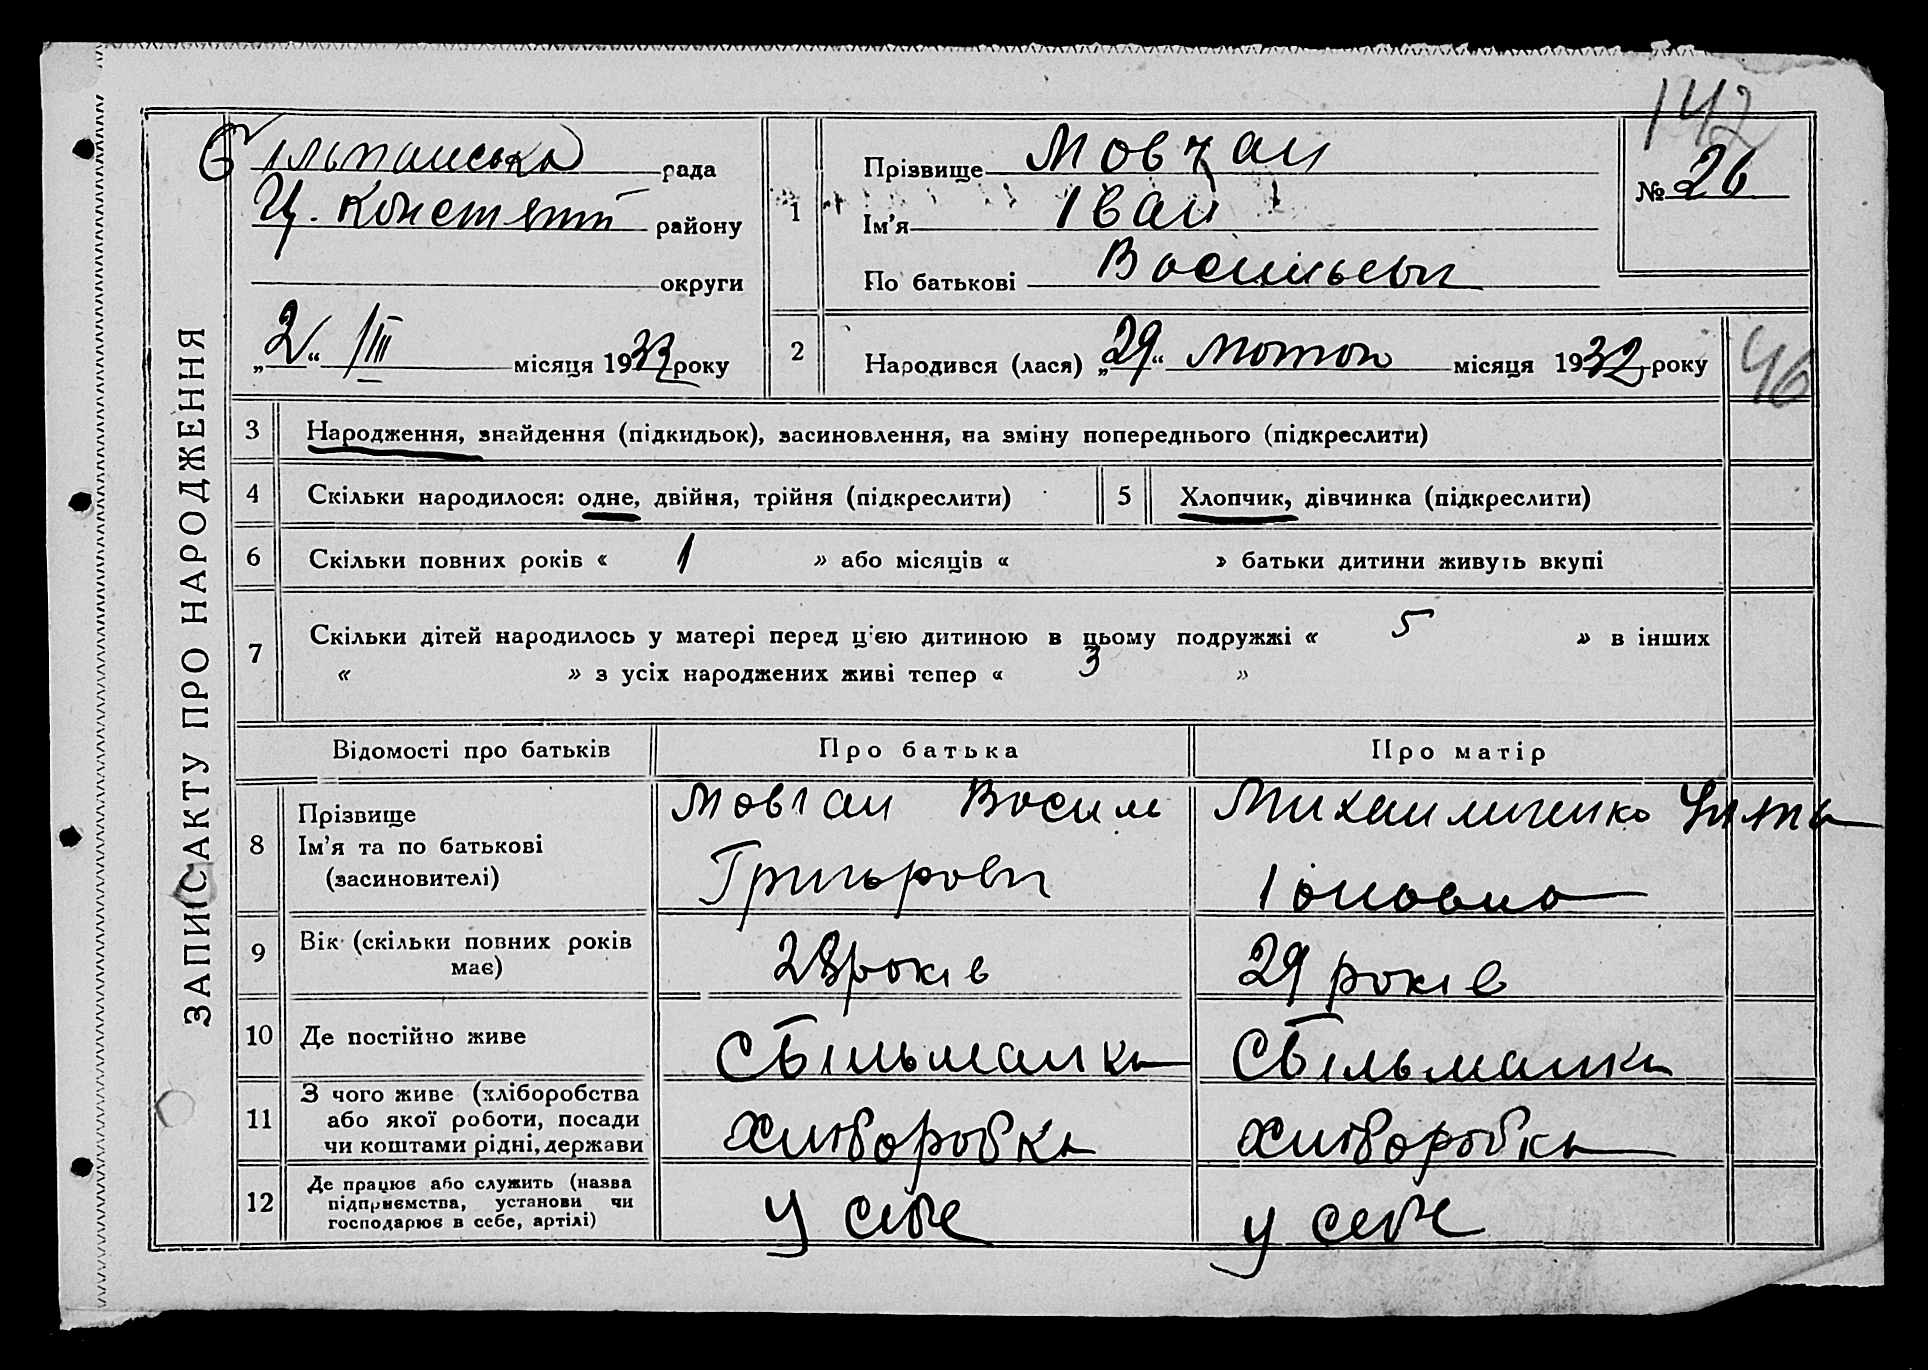 142
ЗАПИС АКТУ ПРО НАРОДЖЕННЯ
рада
району
округи
„2“ III місяця 1933 року
1
Прізвище Мовчан
Ім'я Іван
По батькові
№ 26
2
Народився (лася) „29“ лютого місяця 1932 року
46
3
Народження, знайдення (підкидьок), засиновлення, на зміну попереднього (підкреслити)
4
Скільки народилося: одне, двійня, трійня (підкреслити)
5
Хлопчик, дівчинка (підкреслити)
6
Скільки повних років « 1 » або місяців « » батьки дитини живуть вкупі
7
Скільки дітей народилось у матері перед ц'єю дитиною в цьому подружжі « 5 » в інших
« » з усіх народжених живі тепер « 3 »
Відомості про батьків
Про батька
Про матір
8
Прізвище
Ім'я та по батькові
(засиновителі)
Мовчан Василь
Григорови
Іоновна
9
Вік (скільки повних років
має)
28 років
29 років
10
Де постійно живе
С Більманка
С Більманка
11
З чого живе (хліборобства
або якої роботи, посади
чи коштами рідні, держави
12
Де працює або служить (назва
підприємства, установи чи
господарює в себе, артілі)
у себе
у себе